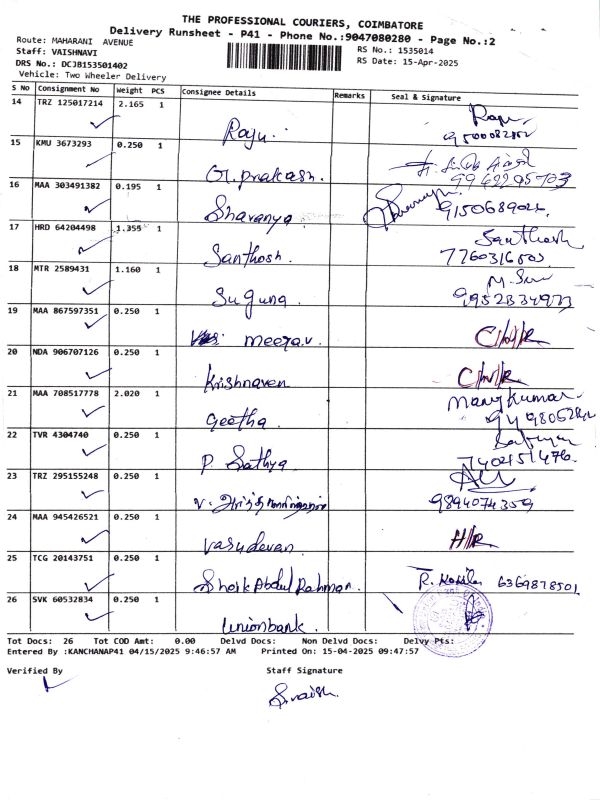 THE PROFESSIONAL COURIERS, COIMBATORE
Delivery Runsheet - P41 - Phone No.:9047080280 - Page No.:2
Route: MAHARANI AVENUE
Staff: VAISHNAVI
RS No.: 1535014
DRS No.: DCJB153501402
RS Date: 15-Apr-2025
Vehicle: Two Wheeler Delivery
S No Consignment No Weight PCS Consignee Details Remarks Seal & Signature
14 TRZ 125017214 2.165 1 Raju Raju
15 KMU 3673293 0.250 1 G. Prakash.
16 MAA 303491382 0.195 1 Sharanya
17 HRD 64204498 1.355 1 Santhosh. Santhosh
18 MTR 2589431 1.160 1 Suguna
19 MAA 867597351 0.250 1 meera.v.
20 NDA 906707126 0.250 1 Krishnaven
21 MAA 708517778 2.020 1 Geetha
22 TVR 4304740 0.250 1 P. Sathya
7402451476.
23 TRZ 295155248 0.250 1
9894074359
24 MAA 945426521 0.250 1 Vasudevan H/R
25 TCG 20143751 0.250 1 Sheik Abdul Rahman. 6369878501
26 SVK 60532834 0.250 1 Unionbank.
Tot Docs: 26 Tot COD Amt: 0.00 Delvd Docs: Non Delvd Docs: Delvy Pts:
Entered By :KANCHANAP41 04/15/2025 9:46:57 AM Printed On: 15-04-2025 09:47:57
Verified By Staff Signature